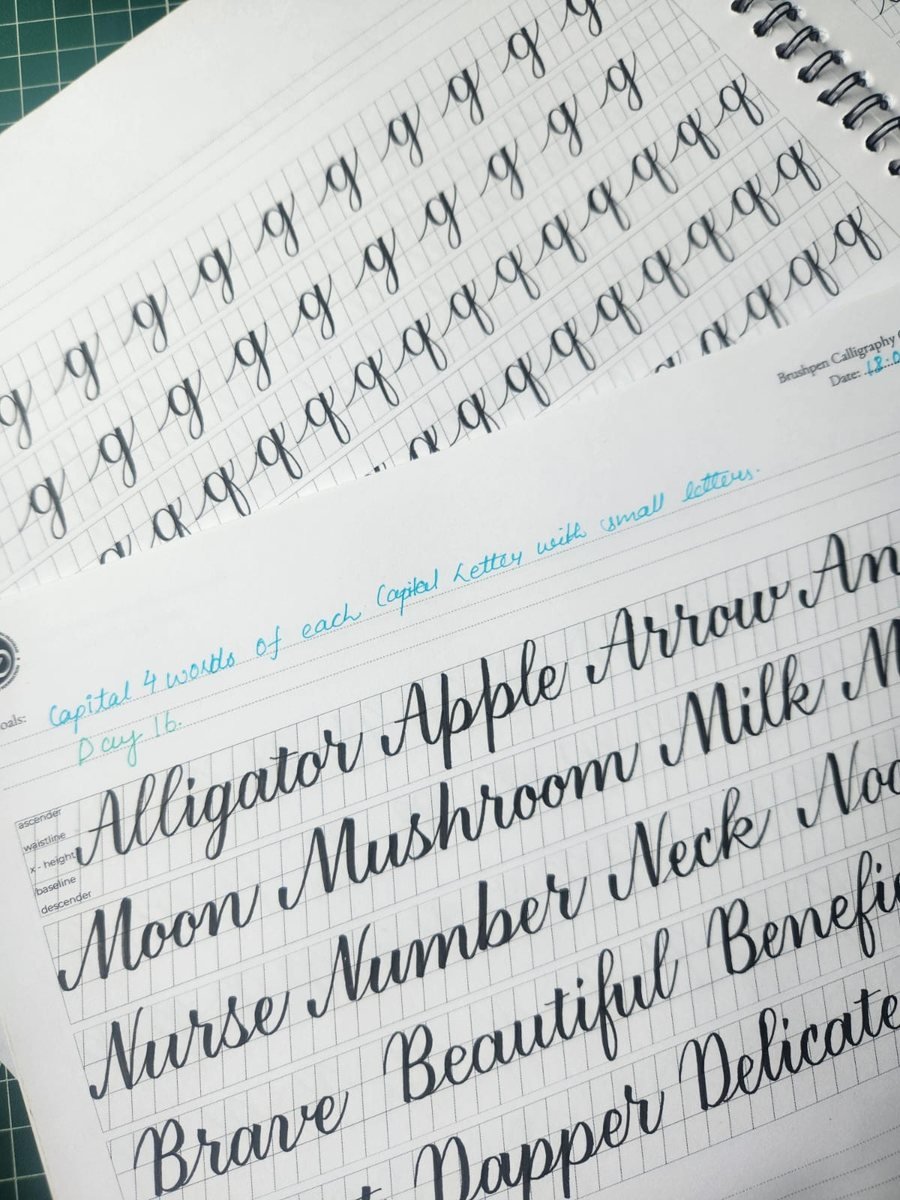 g g g g g g g g g g
g g g g g g g g g g
q q q q q q q q q q q q q
q q q q q q q q q q
q q q q
Brushpen Calligraphy
Date: 18.0
oals: Capital 4 words of each Capital Letter with small letters.
Day 16.
ascender
waistline
x - height
baseline
descender
Alligator Apple Arrow An
Moon Mushroom Milk M
Nurse Number Neck Noo
Brave Beautiful Benefi
t Dapper Delicate